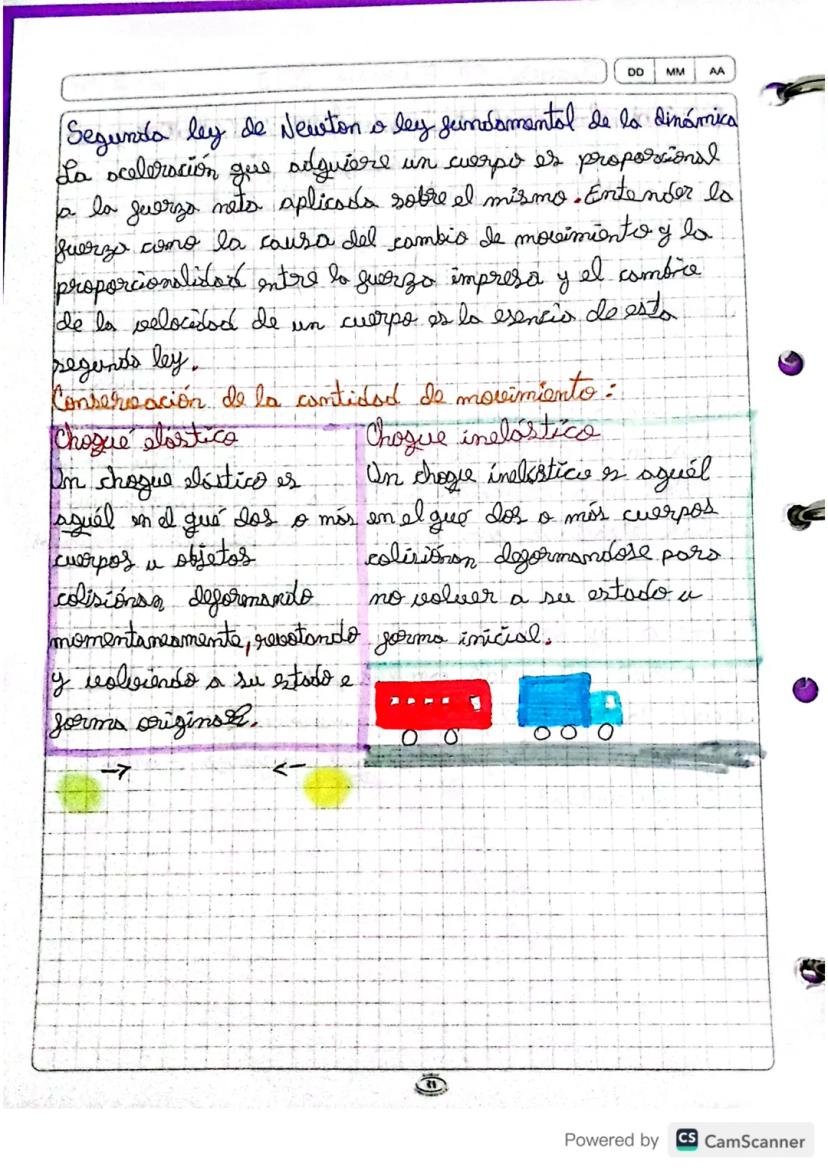 DD MM AA
Segunda ley de Newton o ley fundamental de la dinámica
La aceleración que adquiere un cuerpo es proporcional
a la fuerza neta aplicada sobre el mismo. Entender la
fuerza como la causa del cambio de movimiento y la
proporcionalidad entre la fuerza impresa y el cambio
de la velocidad de un cuerpo es la esencia de esta
segunda ley.
Conservación de la cantidad de movimiento:
Choqué elástico
Un choque elástico es
aquél en el qué dos o más
cuerpos u objetos
colisiónan deformando
momentaneamente, revotando
y volviendo a su estado e
forma original.
Choque inelástico
Un choque inelástico es aquél
en el que dos o más cuerpos
colisiónan deformandose para
no volver a su estado u
forma inicial.
Powered by CS CamScanner